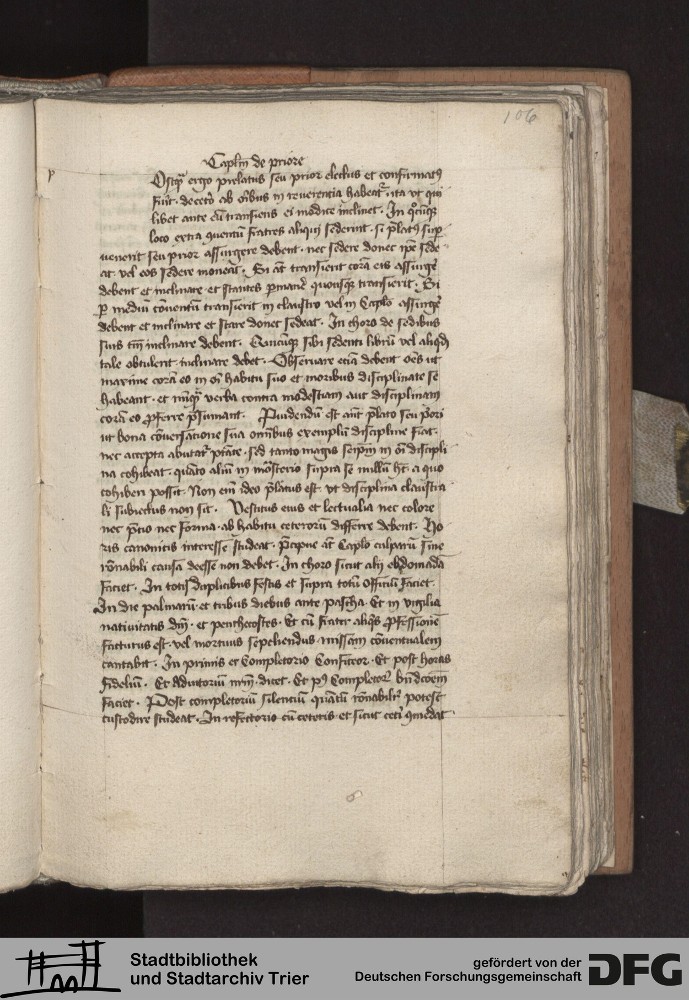 106
Caplm de priore
p
Ostqͥ ergo prelatus seu prior electus et confirmatꝰ
fuit · decetō ab oībus in reuerentia habeat᷑ · ita vt qui
libet ante eū transiens ei modice inclinet · In qͦcūqꝫ
loco extra quentū fratres aliqui sederint · si p̄latꝰ sup
uenerit seu prior assurgere debent · nec sedere donec ip̄e sede
at vel eos sedere moneat · Si āt transierit corā eis assurge᷑
debent et inclinare et stantes ꝑmane᷑ quousqꝫ transierit · Si
ꝑ mediū cōuentū transierit in claustro vel in Caplo assurge᷑
debent et inclinare et stare donec sedeat · In choro de sedibus
suis tm̄ inclinare debent · Quicūqꝫ sibi sedenti librū vel aliqd
tale obtulerit inclinare debet · Obseruare eciā debent oēs vt
maxime corā eo in oī habitu suo et moribus disciplinate se
habeant · et nūqͣ verba contra modestiam aut disciplinam
corā eo ꝓferre p̄sumant · Puidendū est aūt p̄lato seu p̄ori
ut bona cōuersatione sua omībus exemplū discipline fiat ·
nec accepta abutat᷑ ptāte · sed tanto magis seip̄m in oī discipli
na cohibeat · quāto aliū in mōsterio supra se nullū ht · a quo
cohiberi possit · Non em̄ ideo p̄latus est · vt discīplina claustra
li subiectus non sit · Vestitus eius et lectualia nec colore
nec p̄tio nec forma · ab habitu ceterorū differre debent · Ho
ris canonicis interesse studeat · p̄cipue āt Caplo culparū sine
rōnabili causa deesse non debet · In choro sicut alij ebdomadā
faciet · In totis duplicibus festis et supra totū officiū faciet ·
In die palmarū · et tribus diebus ante pascha · Et in vigilia
natiuitatis dn̄i · et penthecostes · Et cū frater aliqͥs ꝓfessionē
facturus est · vel mortuus sepeliendus · missam cōuentualem
cantabit · In primis et Completorio Confiteor · Et post horas
fidelium · Et Adiutorium nr̄m · dicet · Et pꝰ Completor᷑ bn̄dcōem
faciet · Post completoriū silentiū quātū rōnabilit᷑ potest
custodire studeat · In refectorio cū ceteris · et sicut cet᷑i ꝯmedat ·
Stadtbibliothek
und Stadtarchiv Trier
gefördert von der
Deutschen Forschungsgemeinschaft
DFG